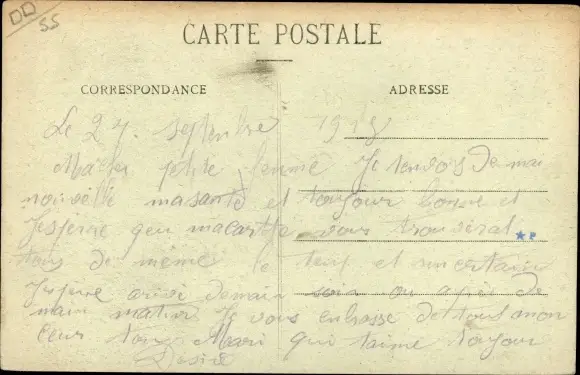 DD
55
CARTE POSTALE
CORRESPONDANCE
ADRESSE
Le 27 septenbre 1918
Ma ptite femme Je tenvois De mai
nouvelle masanté et toujour bonne et
Jespere que macarte vous trouvera
tous de même le et
Jespere arivé demain soir ou apres de
main matin Je vous enbrasse de tout mon
Ceur ton Mari qui taime toujour
Désiré